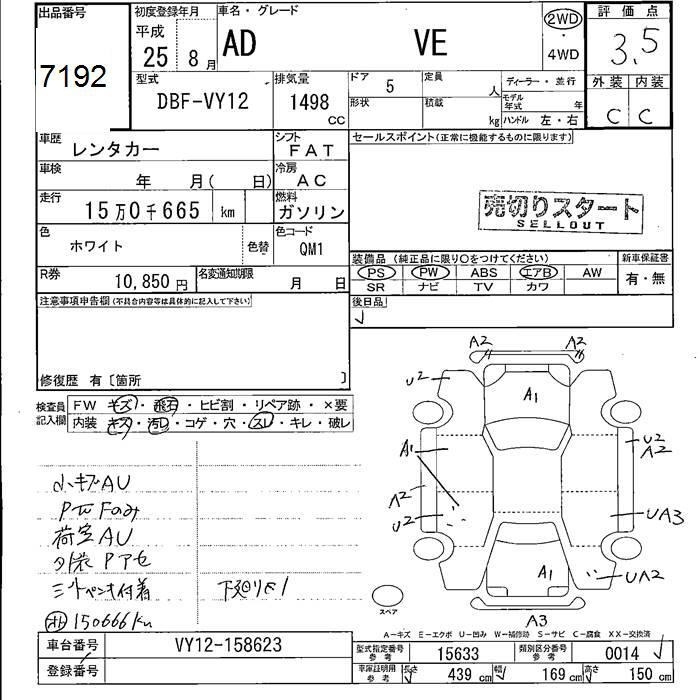 出品番号
7192
初度登録年月
平成
25 8月
車名・グレード
AD VE
2WD
・
4WD
評価点
3.5
外装 内装
C C
型式
DBF-VY12
排気量
1498
CC
ドア 5
形状
定員 人
積載 kg
ディーラー・並行
モデル年式 年
ハンドル 左・右
車歴
レンタカー
シフト
FAT
車検
年 月( 日)
冷房
AC
走行
15万0千665 km
燃料
ガソリン
色
ホワイト
色替
色コード
QM1
R券
10,850円
名変通知期限
月 日
セールスポイント(正常に機能するものに限ります)
売切りスタート
SELLOUT
装備品 (純正品に限り○をつけてください)
新車保証書
PS PW ABS エアB AW
SR ナビ TV カワ
有・無
後日品
注意事項申告欄(不具合内容等は具体的に記入して下さい)
修復歴 有〔箇所 〕
検査員
記入欄
FW キズ・飛石・ヒビ割・リペア跡・×要
内装 キズ・汚れ・コゲ・穴・スレ・キレ・破レ
小キズAU
荷室AU
下廻りサ1
150666km
A2 A2
U2
A1
A1
U2
A2
A2
U2
UA3
A1
UA2
A3
スペア
A-キズ E-エクボ U-凹み W-補修跡 S-サビ C-腐食 XX-交換済
車台番号 VY12-158623
登録番号
型式指定番号
参考
15633
類別区分番号
参考
0014
車庫証明用
参考
長さ 439 cm
幅 169 cm
高さ 150 cm